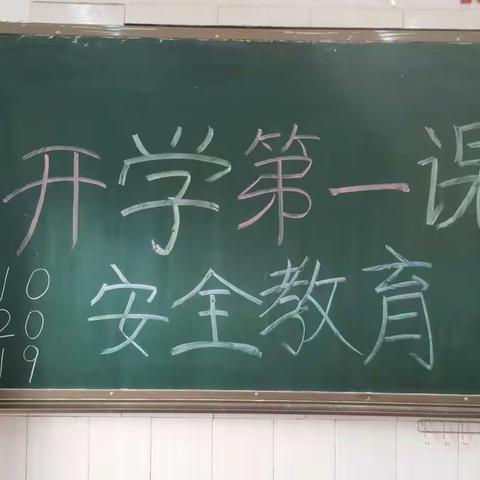 开学第一课
安全教育
10
20
19